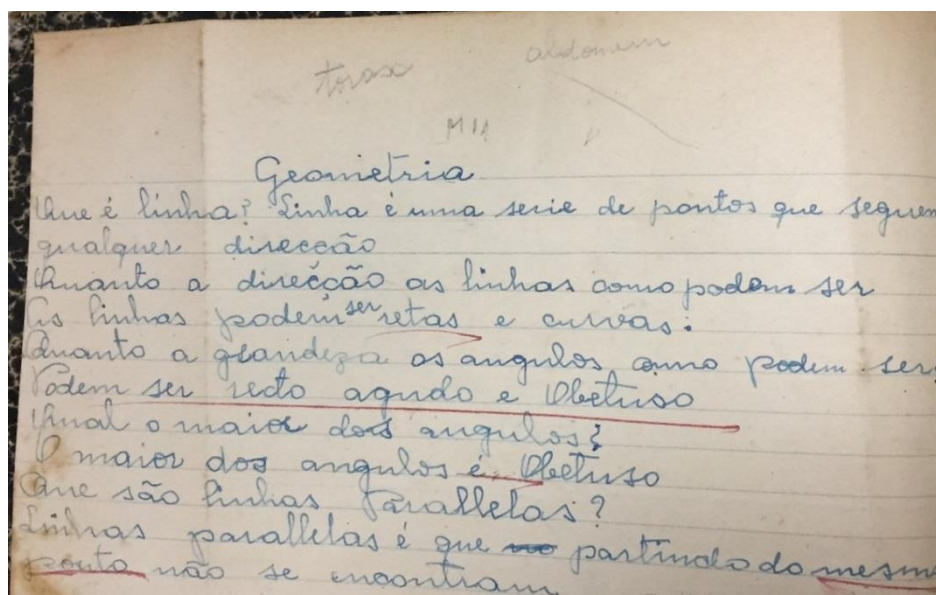 torasc
abdomem
M11
Geometria
Que é linha? Linha é uma serie de pontos que seguem
qualquer direcção
Quanto a direcção as linhas como podem ser
As linhas podem ser retas e curvas:
Quanto a glandeza os angulos como podem ser:
Podem ser recto agudo e Obetuso
Qual o maior dos angulos?
O maior dos angulos é Obetuso
Que são linhas Parallelas?
Linhas parallelas é que partindo do mesmo
ponto não se encontram